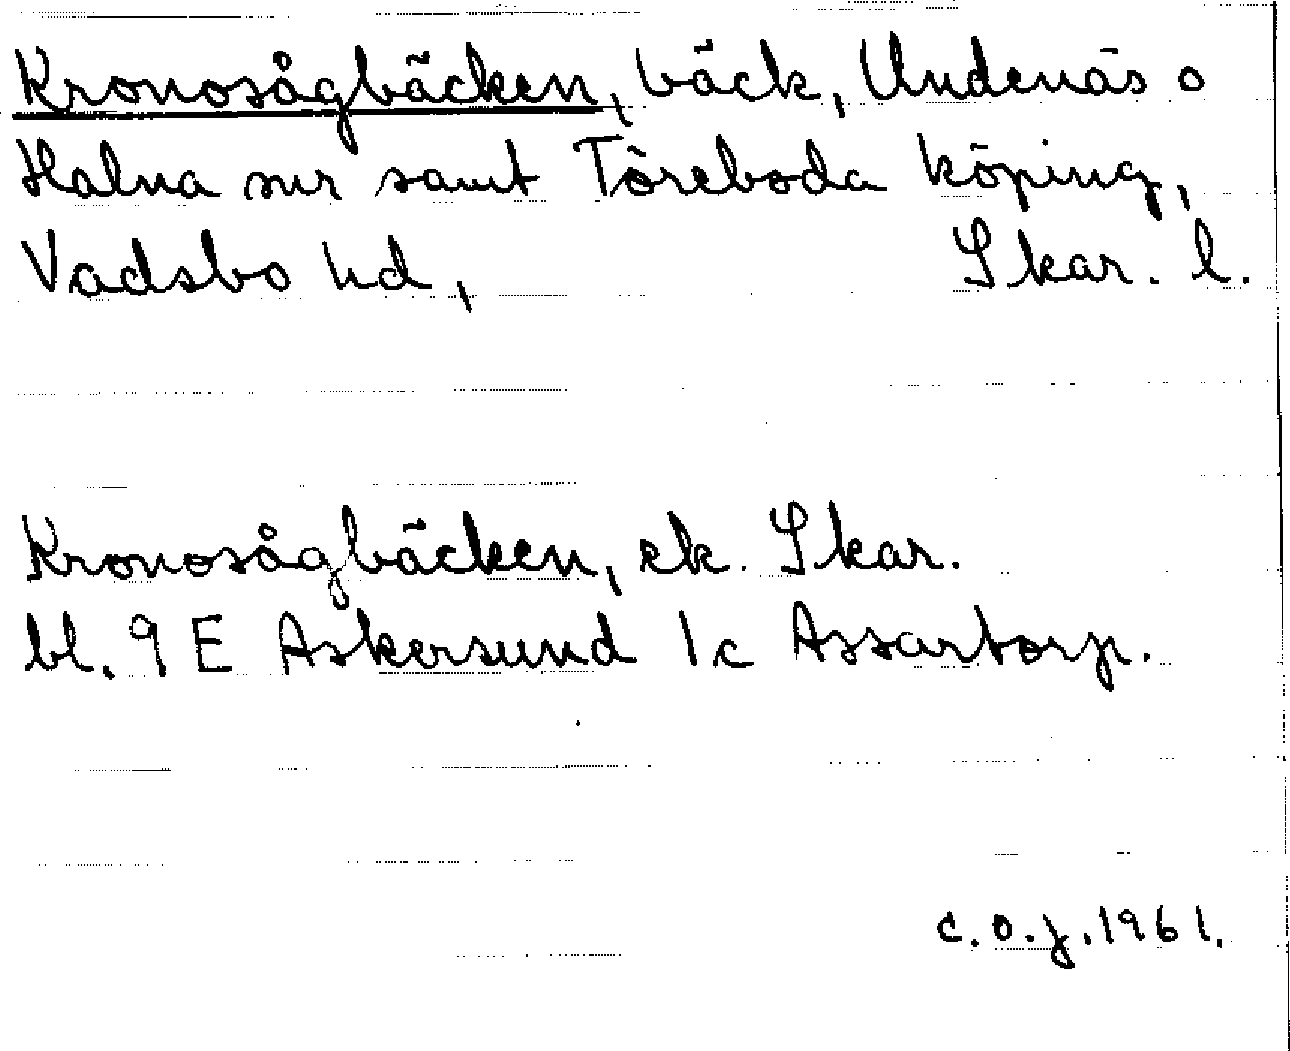 Kronosågbäcken, bäck, Undenäs o
Halna snr samt Töreboda köping,
Vadsbo hd, Skar. l.
Kronosågbäcken, ek. Skar.
bl. 9 E Askersund 1c Assartorp.
C.O.J. 1961.